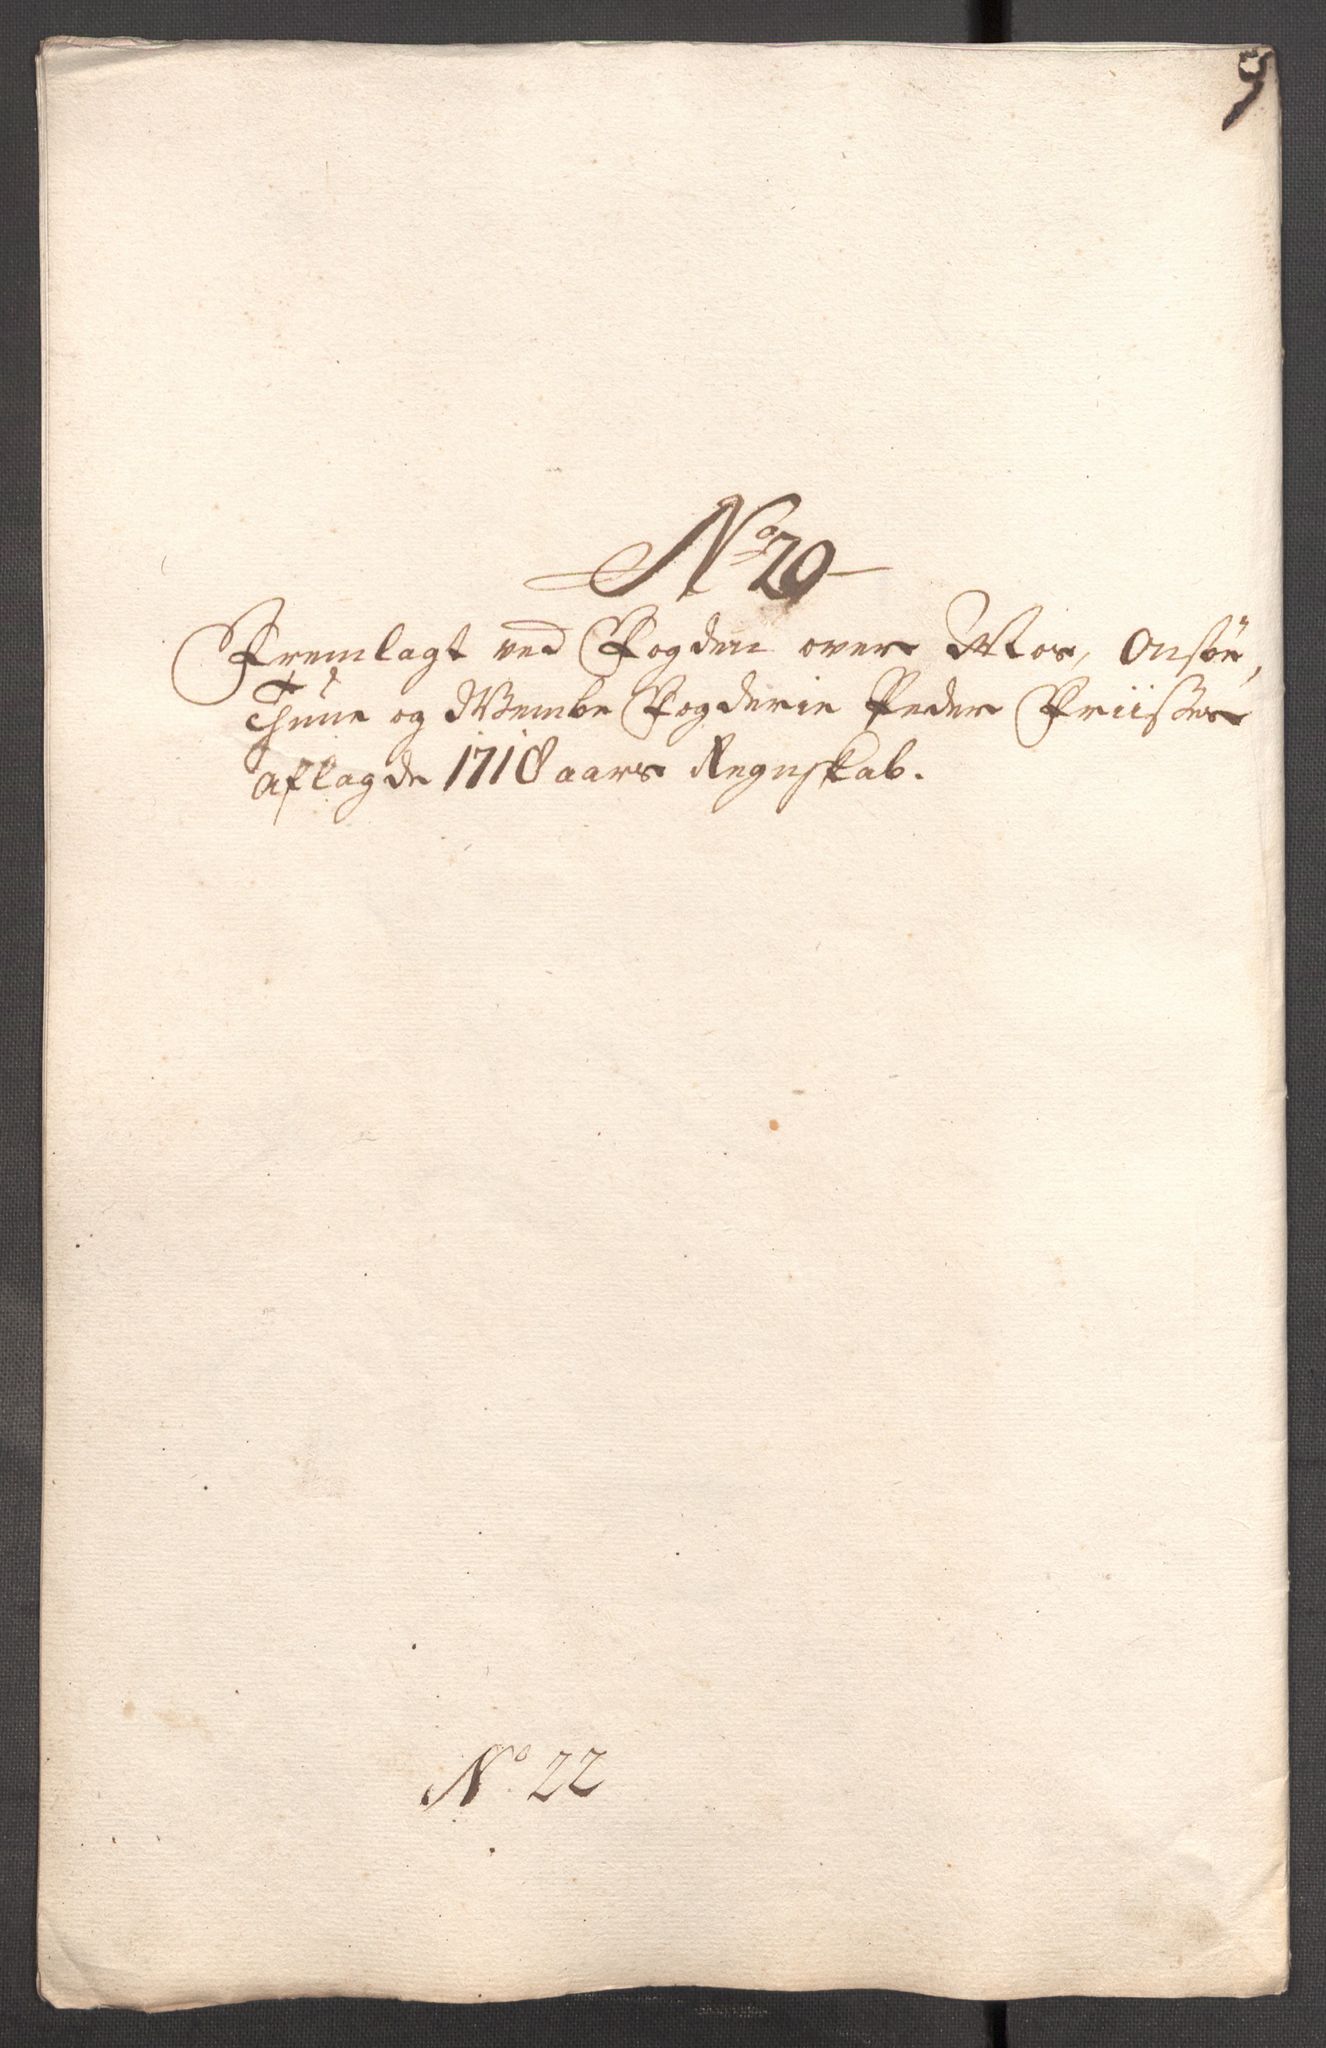 9
No 20
Fremlagt ved Fogden over Mos, Onsöe,
Thune og Wembe Fogderie Peder Friises
aflagde 1718 aars Regnskab.
No 22